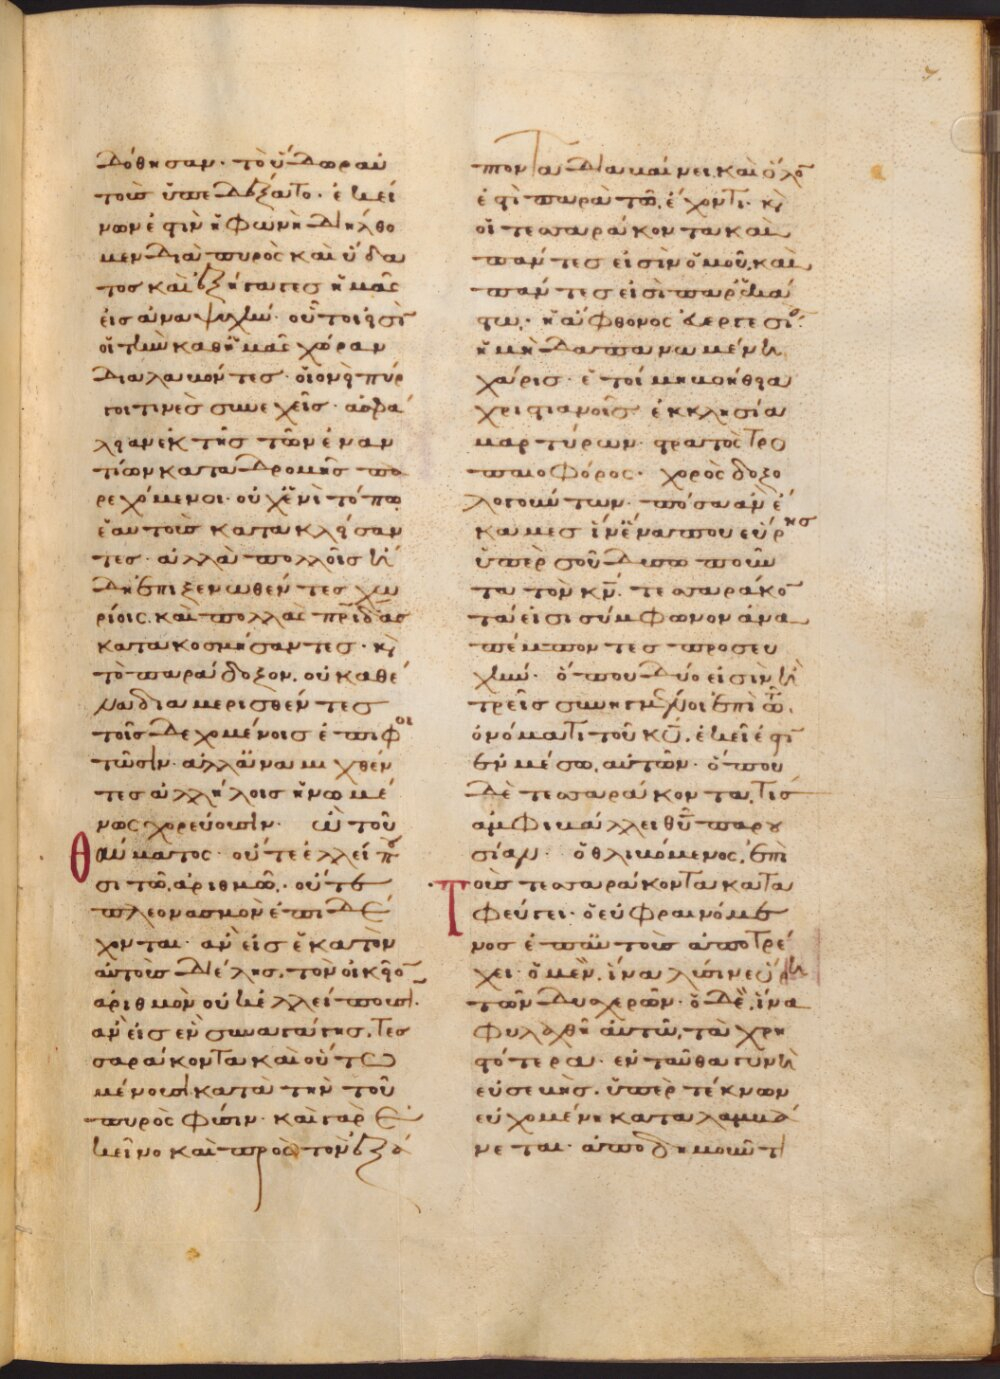 δόθησαν· τὸ ὕδωρ αὐ
τοὺς ὑπεδέξατο· ἐκεί
νων ἐστὶν ἡ φωνὴ διήλθο
μεν διὰ πυρὸς καὶ ὕδα
τος καὶ ἐξήγαγες ἡμᾶς
εἰς ἀναψυχήν· οὗτοί εἰσι
οἱ τὴν καθ ἡμᾶς χώραν
διαλαχόντες· οἱονεὶ πύρ
γοι τινὲς συνεχεῖς· ἀσφά
λειαν ἐκ τῆς τῶν ἐναν
τίων καταδρομῆς πα
ρεχόμενοι· οὐχ ἑνὶ τόπω
ἑαυτοὺς κατακλείσαν
τες· ἀλλὰ πολλοῖς ἤ
δη ἐπιξενωθέντες χω
ρίοις, καὶ πολλὰς πρίδας
κατακοσμήσαντες· κὶ
τὸ παράδοξον, οὐ καθέ
να διαμερισθέντες
τοῖς δεχομένοις ἐπιφοι
τῶσιν· ἀλλ ἀναμιχθέν
τες ἀλλήλοις ἡνωμέ
νως χορεύουσιν· ὢ τοῦ
θαύματος· οὔτε ἐλλείπου
σι τῶ ἀριθμῶ· οὔτε
πλεονασμὸν ἐπιδέ
χονται· ἂν εἰς ἑκατὸν
αὐτοὺς διέλης, τὸν οἰκεῖο
ἀριθμὸν οὐκ ἐλλείπουσι·
ἂν εἰς ἓν συναγάγης, τεσ
σαράκοντα καὶ οὕτω
μένουσι κατὰ τὴν τοῦ
πυρὸς φύσιν· καὶ γὰρ ἐ
κεῖνο καὶ πρὸς τὸν ἐξά
πτοντα διαβαίνει, καὶ ὅλο
ἐστὶ παρὰ τῶ ἔχοντι· κὶ
οἱ τεσσαράκοντα καὶ
πάντες εἰσὶν ὁμοῦ, καὶ
πάντες εἰσὶ παρ ἑκά
στω· ἡ ἄφθονος εὐεργεσία·
ἡ μὴ δαπανωμένη
χάρις· ἑτοίμη βοήθεια
χριστιανοῖς ἐκκλησία
μαρτύρων· στρατὸς τρο
παιοφόρος· χορὸς δοξο
λογούντων· πόσα ἂν ἔ
καμες ἵν ἕνα που εὕρης
ὑπὲρ σοῦ δυσωποῦν
τα τὸν κν· τεσσαράκο
τα εἰσι σύμφωνον ἀνα
πέμποντες προσευ
χήν· ὅπου δύο εἰσὶν ἢ
τρεῖς συνηγμένοι ἐπὶ τῶ
ὀνόματι τοῦ κυ, ἐκεῖ ἐστι
ἐν μέσω αὐτῶν· ὅπου
δὲ τεσσαράκοντα, τίς
ἀμφιβάλλει θυ παρου
σίαν· ὁ θλιβόμενος, ἐπὶ
τοὺς τεσσαράκοντα κατα
φεύγει· ὁ εὐφραινόμε
νος ἐπ αὐτοὺς ἀποτρέ
χει· ὁ μὲν, ἵνα λύσιν εὕρη
τῶν δυσχερῶν· ὁ δὲ, ἵνα
φυλαχθῆ αὐτῶ, τὰ χρη
στότερα· ἐνταῦθα γυνὴ
εὐσεβὴς, ὑπὲρ τέκνων
εὐχομένη καταλαμβά
νεται· ἀποδημοῦντι